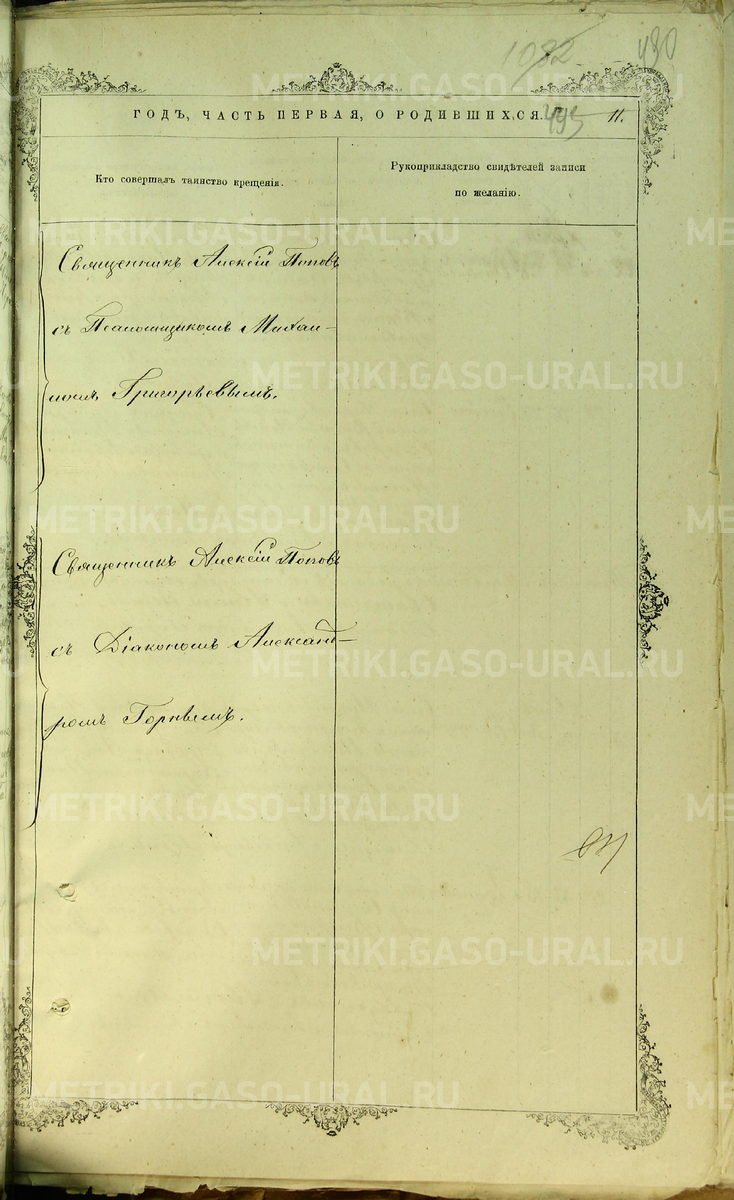 1082.
480
ГОДЪ, ЧАСТЬ ПЕРВАЯ, О РОДИВШИХСЯ.
493
11.
Кто совершалъ таинство крещенія.
Рукоприкладство свидѣтелей записи
по желанію.
Священникъ Алексій Поповъ
съ Псаломщикомъ Михаи-
ломъ Григорьевымъ.
Священникъ Алексій Поповъ
съ Діакономъ Александ-
ромъ Горнымъ.
METRIKI.GASO-URAL.RU